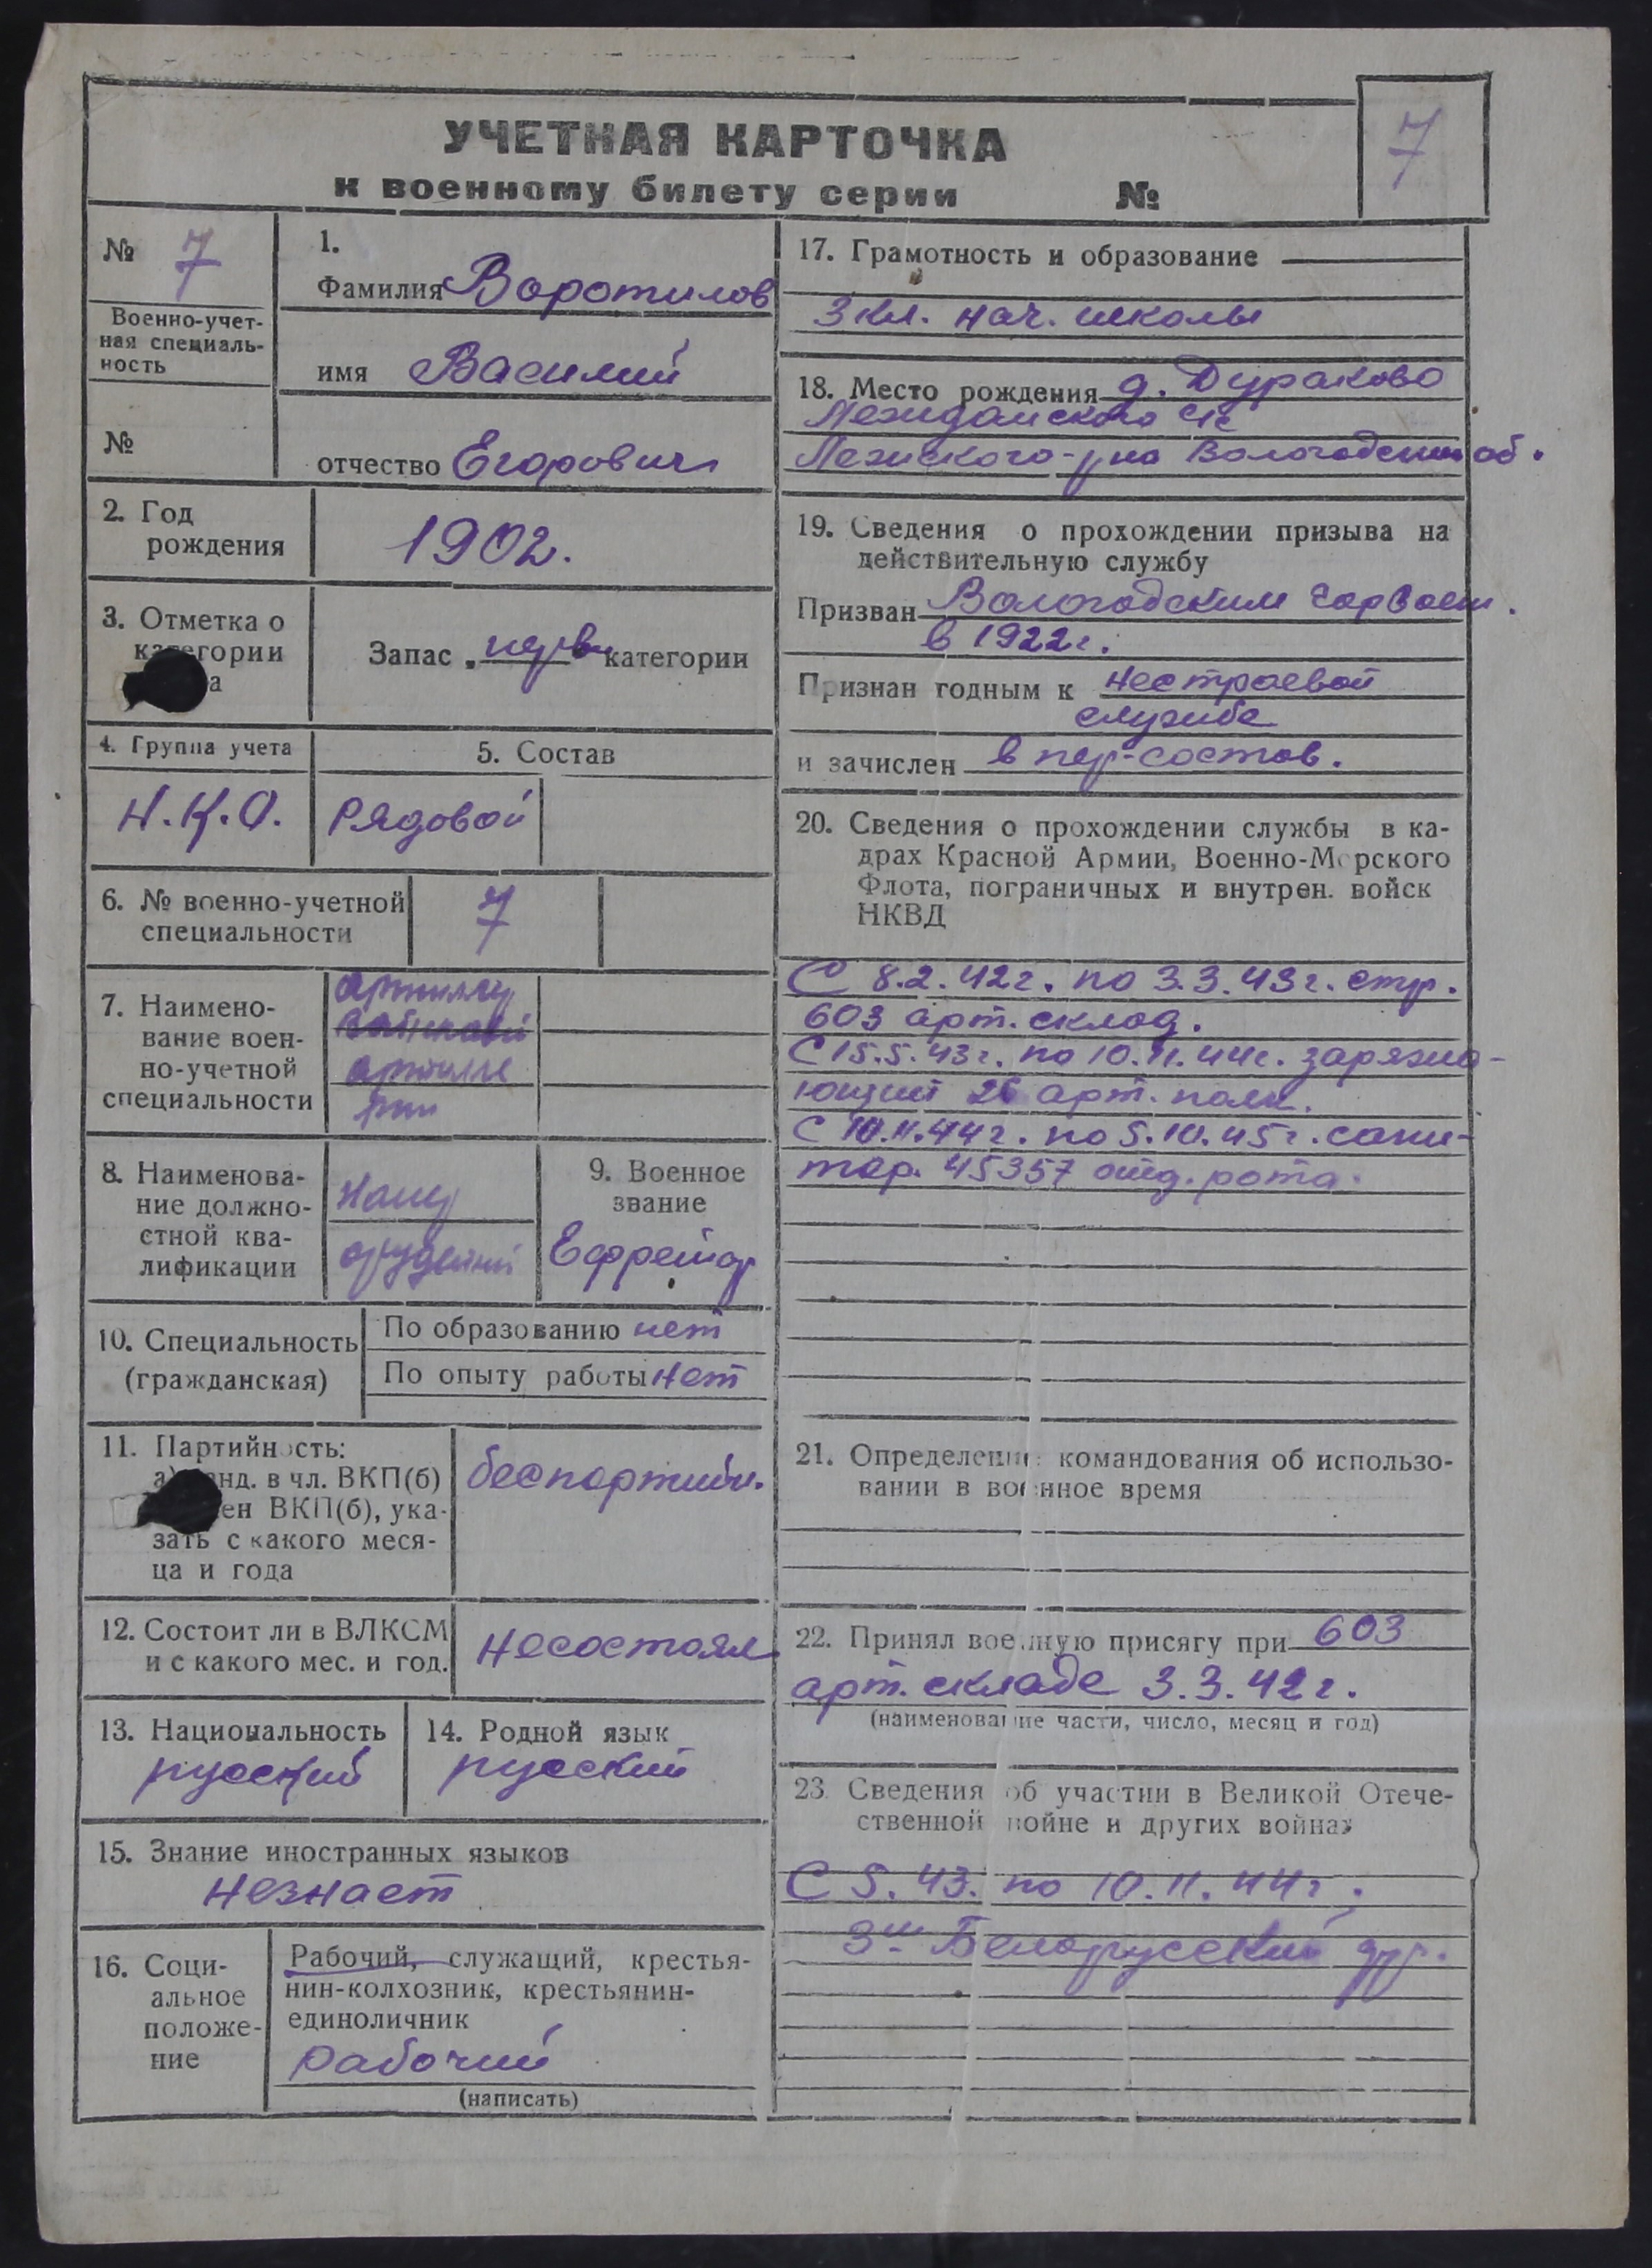 УЧЕТНАЯ КАРТОЧКА
к военному билету серии №
7
№ 7
Военно-учет-
ная специаль-
ность
№
1.
Фамилия Воротилов
имя Василий
отчество Егорович
2. Год
рождения
1902.
3. Отметка о
категории
а
Запас „перв категории
4. Группа учета
Н.К.О.
5. Состав
Рядовой
6. № военно-учетной
специальности
7
7. Наимено-
вание воен-
но-учетной
специальности
артиллер
артилле
рии
8. Наименова-
ние должно-
стной ква-
лификации
орудейный
9. Военное
звание
Ефрейтор
10. Специальность
(гражданская)
По образованию нет
По опыту работы нет
11. Партийность:
а) канд. в чл. ВКП(б)
ен ВКП(б), ука-
зать с какого меся-
ца и года
беспартийн.
12. Состоит ли в ВЛКСМ
и с какого мес. и год.
Несостоял
13. Национальность
русский
14. Родной язык
русский
15. Знание иностранных языков
Незнает
16. Соци-
альное
положе-
ние
Рабочий, служащий, крестья-
нин-колхозник, крестьянин-
единоличник
рабочий
(написать)
17. Грамотность и образование
3 кл. нач. школы
18. Место рождения д. Дураково
с/с
Лежского р-на Вологодской об.
19. Сведения о прохождении призыва на
действительную службу
Призван Вологодским Горвоен.
в 1922г.
Признан годным к нестроевой
службе
и зачислен в пер-состав.
20. Сведения о прохождении службы в ка-
драх Красной Армии, Военно-Морского
Флота, пограничных и внутрен. войск
НКВД
С 8.2.42г. по 3.3.43г. стр.
603 арт. склад.
С 15.5.43г. по 10.11.44г. заряжа-
ющий 26 арт. полк.
С 10.11.44г. по 5.10.45г. сани-
тар. 45357 отд. рота.
21. Определение командования об использо-
вании в военное время
22. Принял военную присягу при 603
арт. складе 3.3.42г.
(наименование части, число, месяц и год)
23. Сведения об участии в Великой Отече-
ственной войне и других войнах
С 5.43. по 10.11.44г.
3ий Белорусский фр.